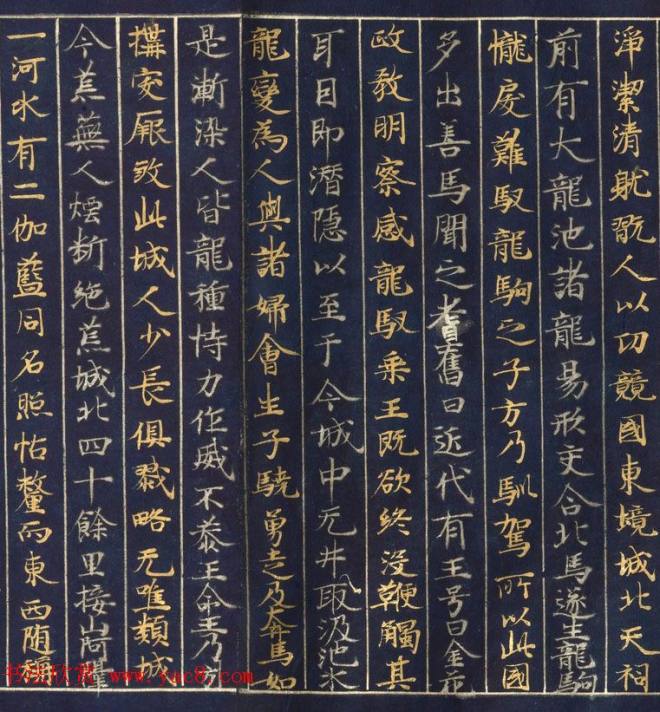 淨潔清躭翫人以功競國東境城北天祠
前有大龍池諸龍易形交合北馬遂生龍駒
㦬戾難馭龍駒之子方乃馴駕所以此國
多出善馬聞之耆舊曰近代有王号曰金花
政教明察感龍馭乘王既欲終没鞭觸其
耳目即潛隱以至于今城中无井取汲池水
龍變為人與諸婦會生子驍勇走及奔馬如
是漸染人皆龍種恃力作威不恭王命王乃
搆突厥致此城人少長俱戮略无唯類城
今荒蕪人煙斷絶荒城北四十餘里接山
一河水有二伽藍同名照怙釐而東西随
书法欣赏 www.yac8.com